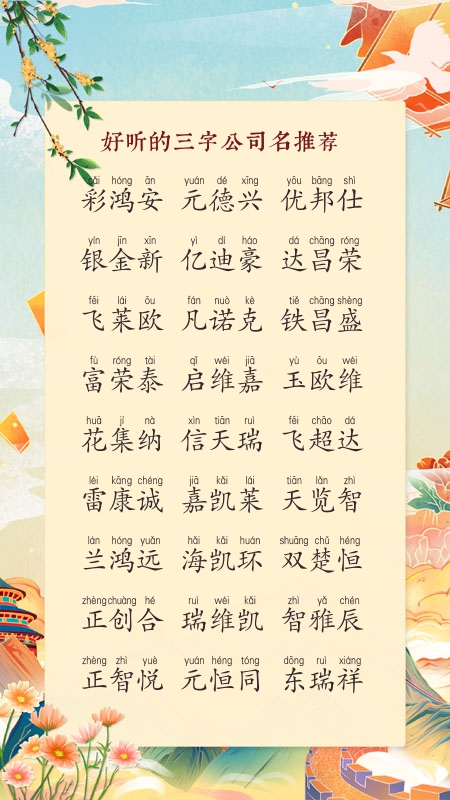 好听的三字公司名推荐
cǎi hóng ān yuán dé xīng yōu bāng shì
彩鸿安 元德兴 优邦仕
yín jīn xīn yì dí háo dá chāng róng
银金新 亿迪豪 达昌荣
fēi lái ōu fán nuò kè tiě chāng shèng
飞莱欧 凡诺克 铁昌盛
fù róng tài qǐ wéi jiā yù ōu wéi
富荣泰 启维嘉 玉欧维
huā jí nà xìn tiān ruì fēi chāo dá
花集纳 信天瑞 飞超达
léi kāng chéng jiā kǎi lái tiān lǎn zhì
雷康诚 嘉凯莱 天览智
lán hóng yuǎn hǎi kǎi huán shuāng chǔ héng
兰鸿远 海凯环 双楚恒
zhèng chuàng hé ruì wéi kǎi zhì yǎ chén
正创合 瑞维凯 智雅辰
zhèng zhì yuè yuán héng tóng dōng ruì xiáng
正智悦 元恒同 东瑞祥